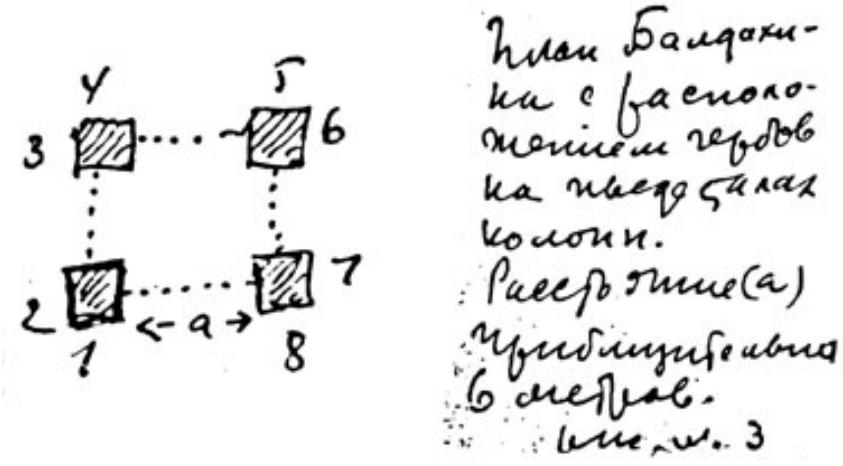 4 5
3 6
2 7
1 ← a → 8
План Балдахи-
на с располо-
жением гербов
на пьедесталах
колонн.
Расстояние (а)
приблизительно
6 метров.
3